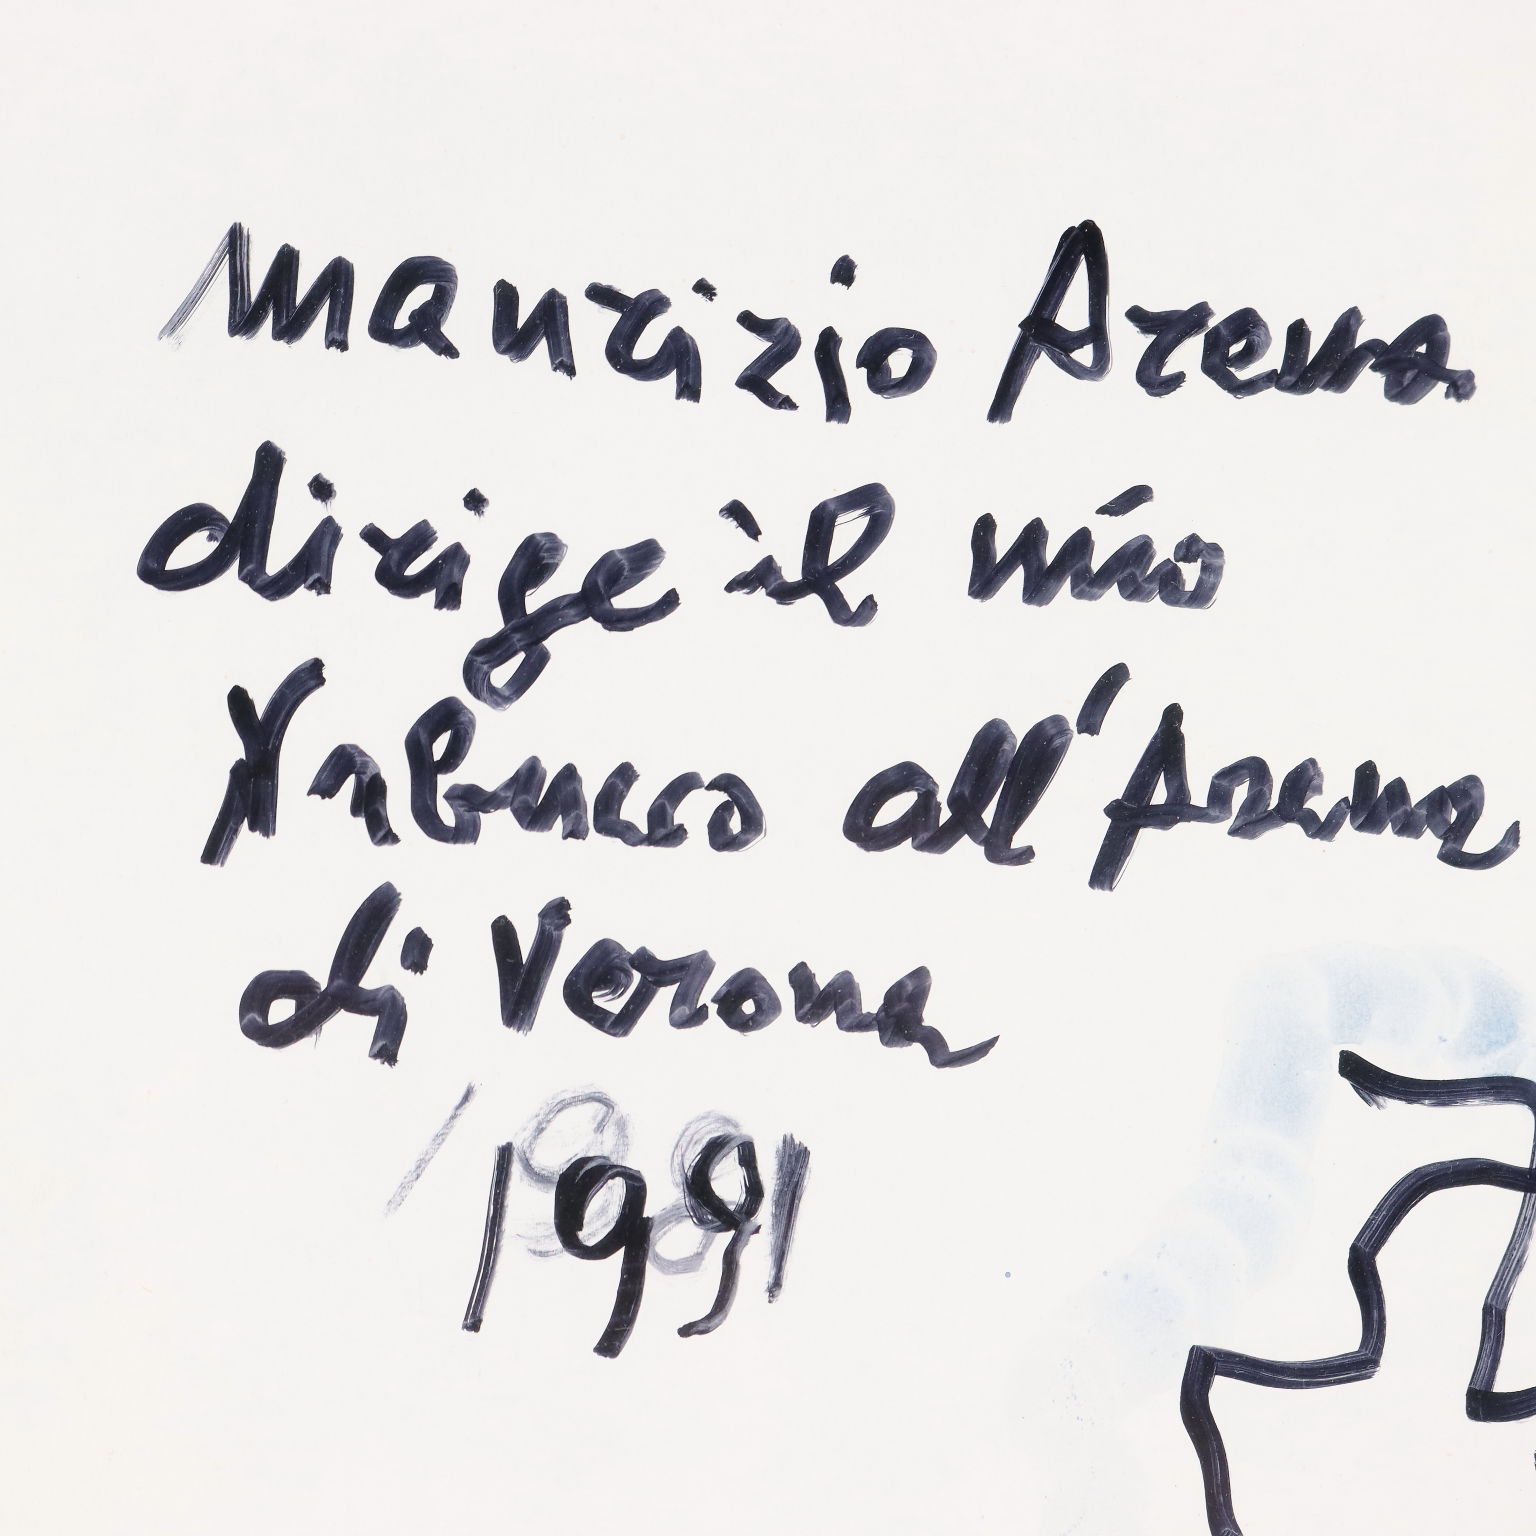 Maurizio Arena
dirige il mio
Nabucco all'Arena
di Verona
1991